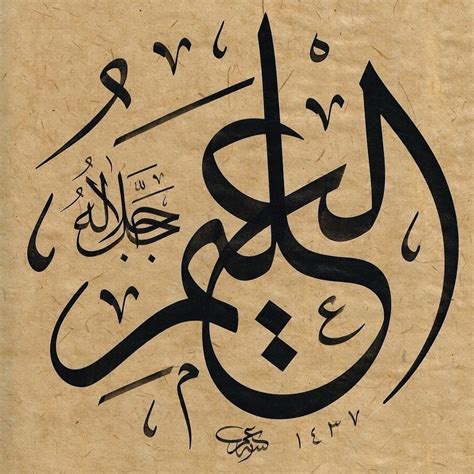 العليم
جل جلاله
١٤٣٧